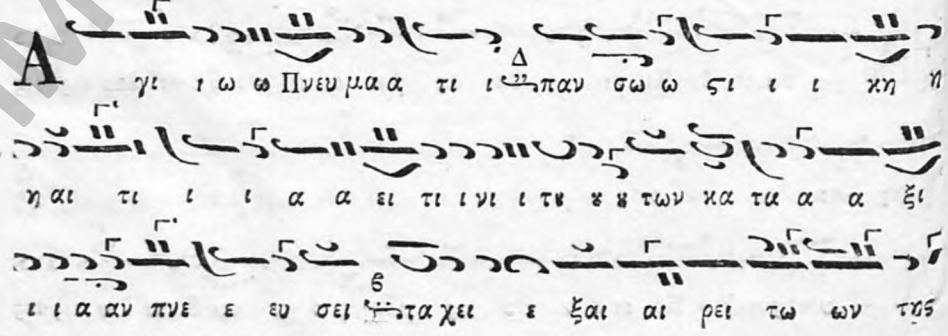 Α γι ι ω ω Πνευ μα α τι ι παν σω ω ϛι ι ι κη η
η αι τι ι ι α α ει τι ι νι ι τȣ ȣ ȣ των κα τα α α ξι
ι ι α αν πνε ε ευ σει τα χει ε ξαι αι ρει τω ων της